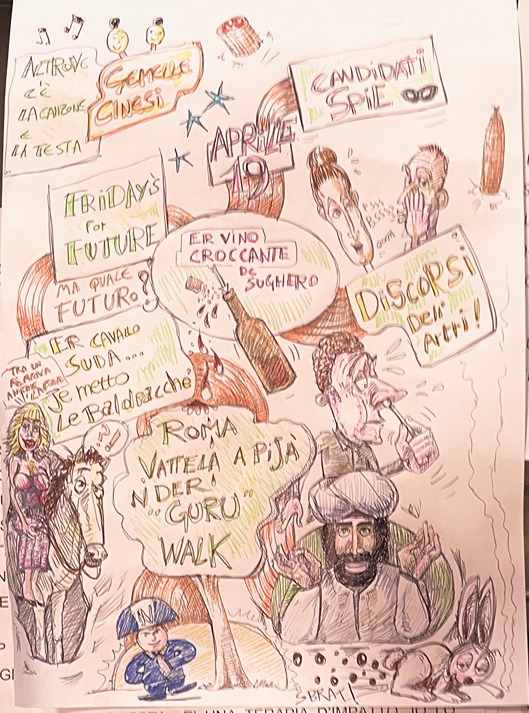 ALTROVE
C'È
LA CANZONE
E
LA TESTA
GEMELLE
CINESI
CANDIDATI
SPIE
APRILE
19
FRIDAY'S
for
FUTURE
MA QUALE
FUTURO?
ER VINO
CROCCANTE
DE
SUGHERO
DISCORSI
Dell'
Artri!
ER CAVALLO
SUDA...
Je metto
Le Baldracche
TRA UN
PO ARRIVA
ANCHE
ROMA
VATTELA A PIJÀ
N DER!
"GURU"
WALK
N
SBRAT!